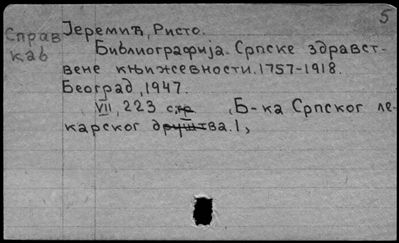 5
Справ
каб
Јеремић, Ристо.
Библиографија Српске здравст-
вене књижевности. 1757-1918.
Београд, 1947.
VII, 223 стр , Б-ка Српског ле-
карског друштва. 1,